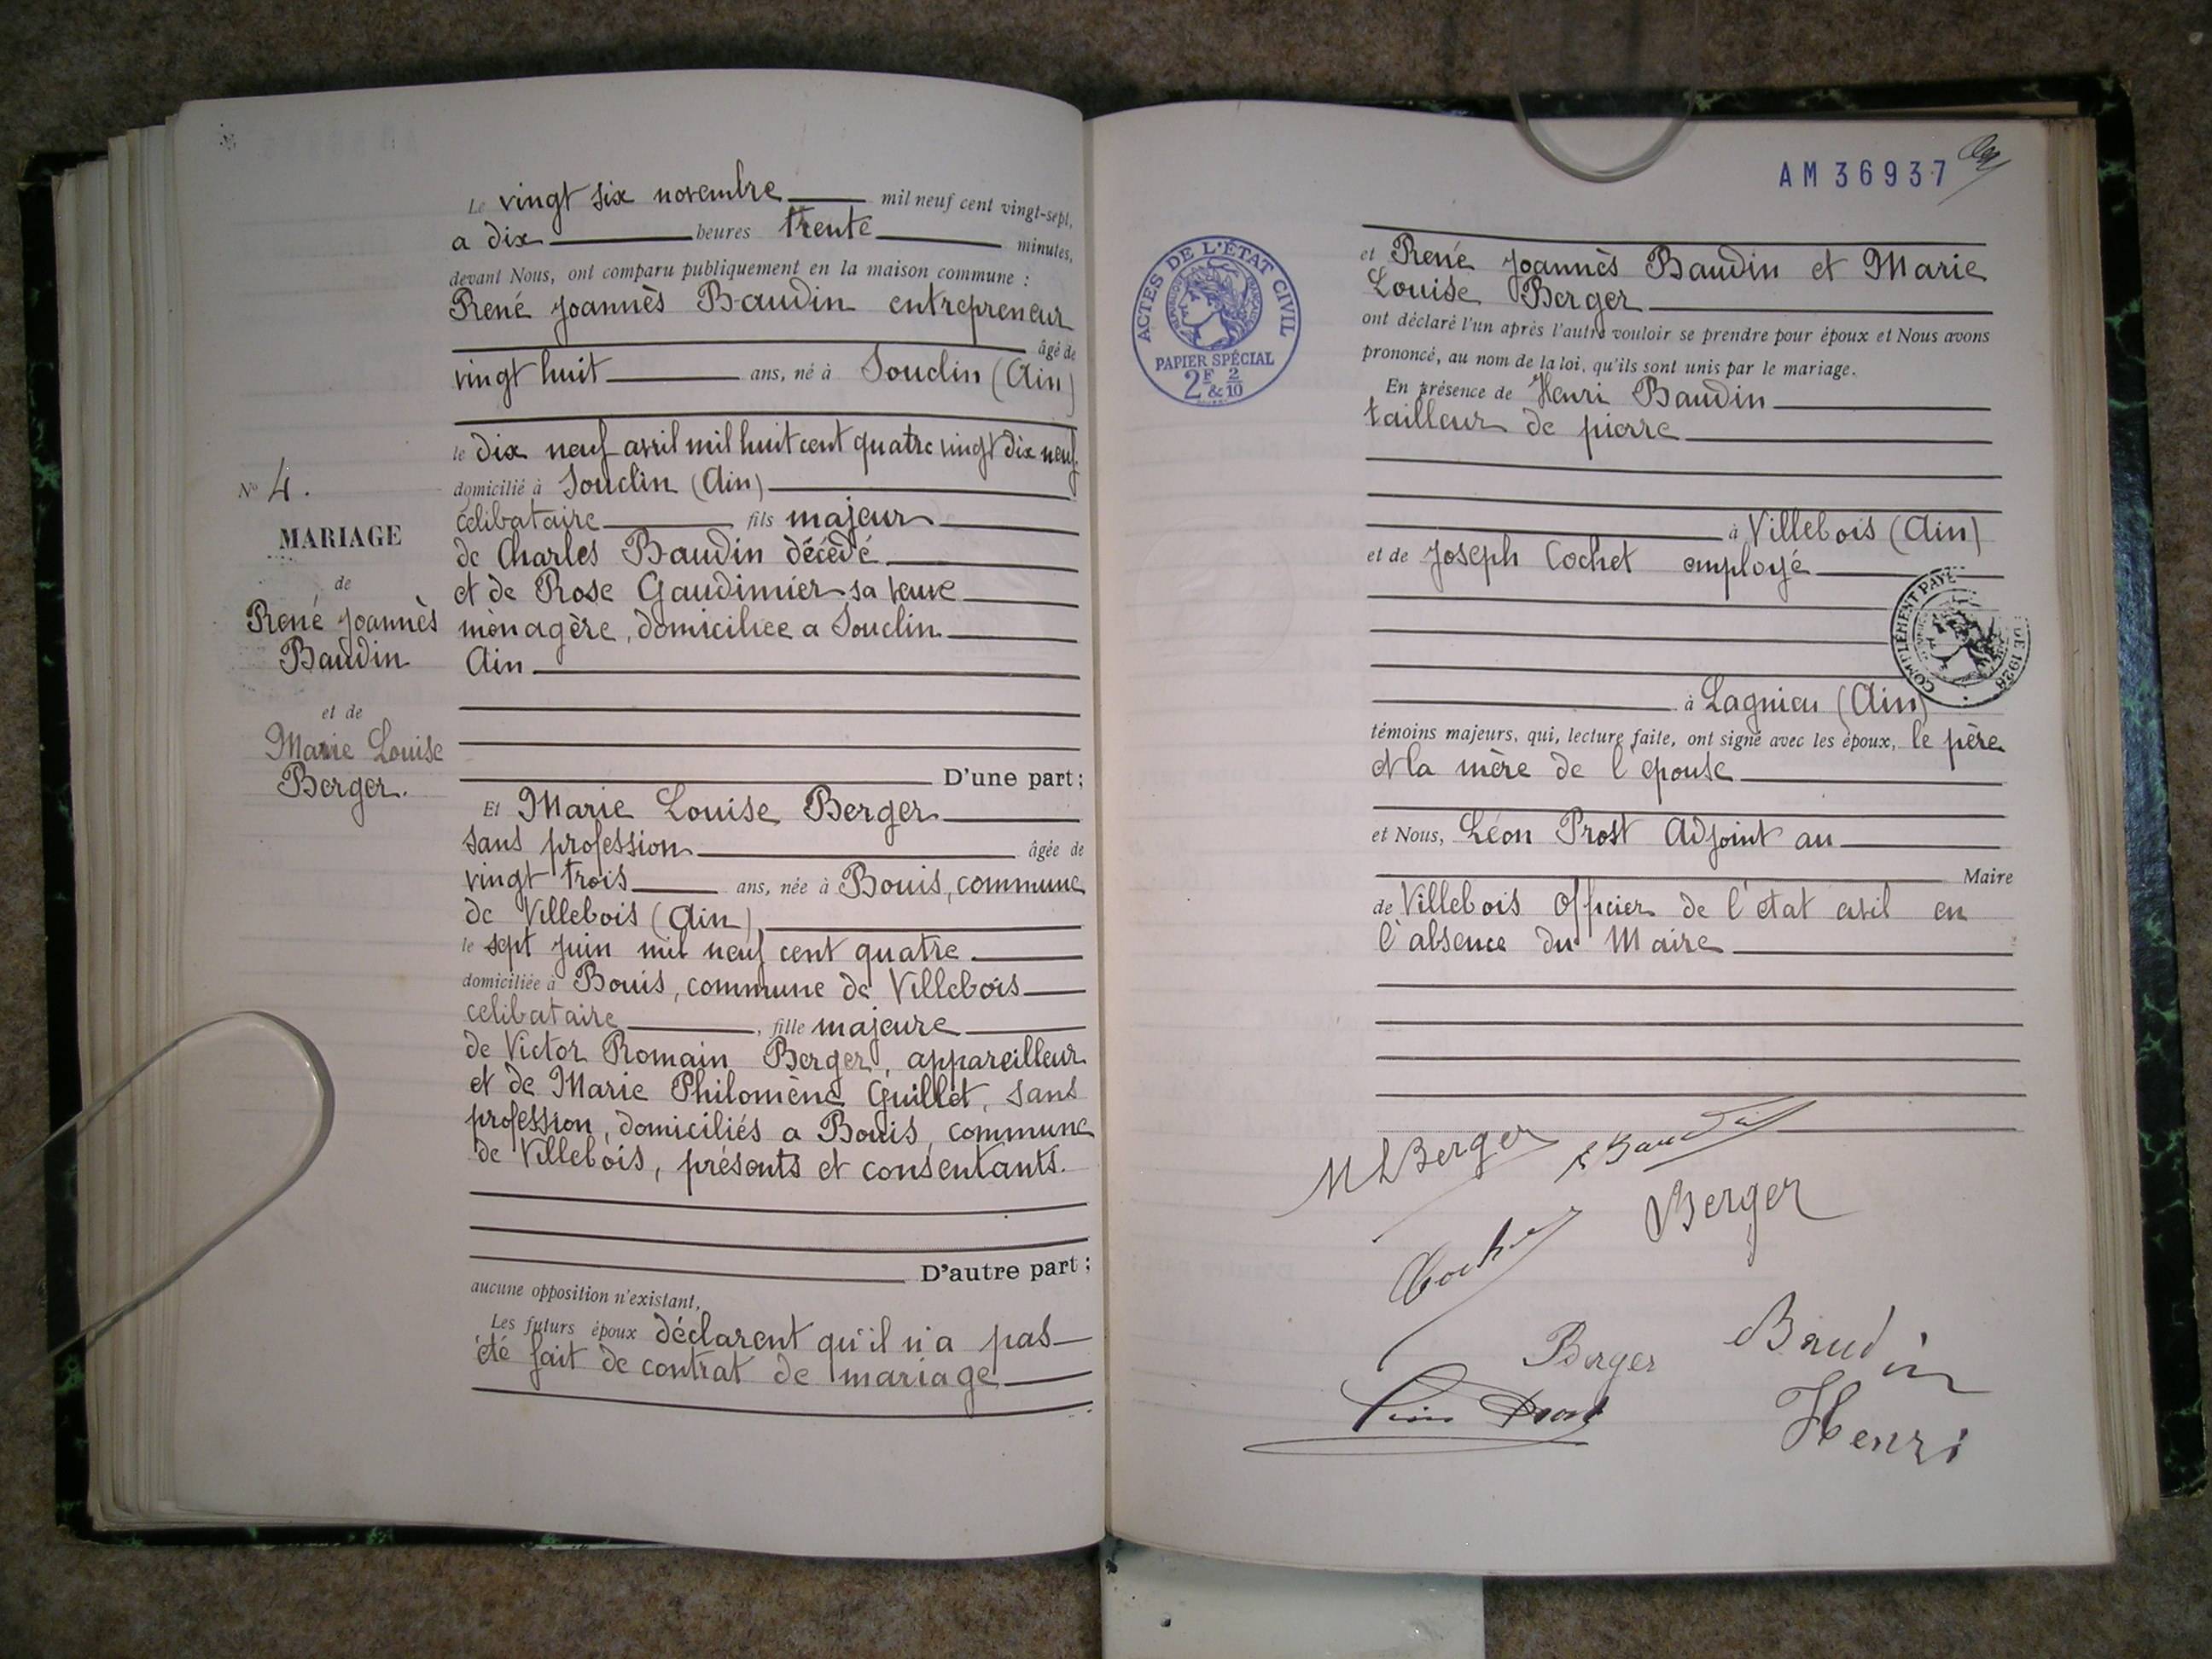 Le vingt six novembre mil neuf cent vingt-sept,
a dix heures trente minutes,
devant Nous, ont comparu publiquement en la maison commune :
René Joannès Baudin entrepreneur
âgé de
vingt huit ans, né à Souclin (Ain)
le dix neuf avril mil huit cent quatre vingt dix neuf.
domicilié à Souclin (Ain)
célibataire fils majeur
de Charles Baudin décédé
et de Rose Gaudimier sa veuve
ménagère, domiciliée a Souclin
Ain
D'une part ;
Et Marie Louise Berger
sans profession âgée de
vingt trois ans, née à Bouis, commune
de Villebois (Ain)
le sept juin mil neuf cent quatre
domiciliée à Bouis, commune de Villebois
celibataire, fille majeure
de Victor Romain Berger, appareilleur
et de Marie Philomène Guillet, sans
profession, domiciliés a Bouis, commune
de Villebois, présents et consentants.
D'autre part ;
aucune opposition n'existant,
Les futurs époux déclarent qu'il n'a pas
été fait de contrat de mariage
N° 4.
MARIAGE
de
René Joannès
Baudin
et de
Marie Louise
Berger.
AM 36937
ACTES DE L'ÉTAT CIVIL
RÉPUBLIQUE FRANÇAISE
PAPIER SPÉCIAL
2F & 2/10
et René Joannès Baudin et Marie
Louise Berger
ont déclaré l'un après l'autre vouloir se prendre pour époux et Nous avons
prononcé, au nom de la loi, qu'ils sont unis par le mariage.
En présence de Henri Baudin
tailleur de pierre
à Villebois (Ain)
et de Joseph Cochet employé
COMPLÉMENT PAYÉ
DE 1926
à Lagnieu (Ain)
témoins majeurs, qui, lecture faite, ont signé avec les époux, le père
et la mère de l'épouse
et Nous, Léon Prost Adjoint au
Maire
de Villebois Officier de l'état civil en
l'absence du Maire
M L Berger
R Baudin
Berger
Cochet
Berger
Baudin
Henri
Léon Prost